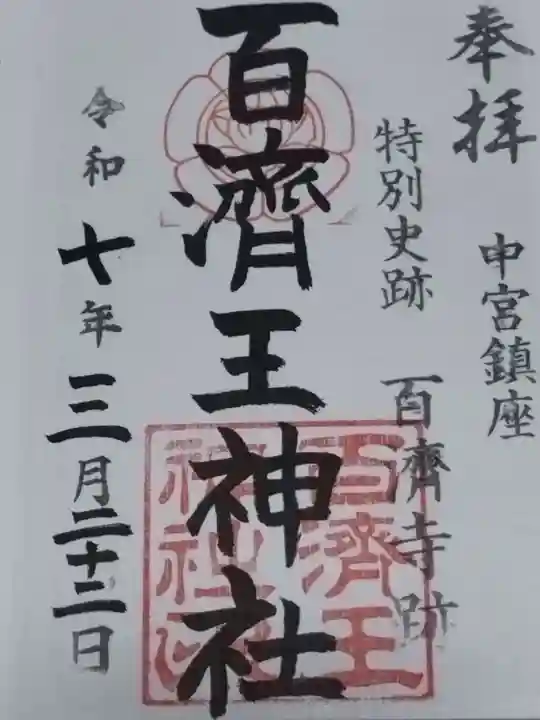 奉拝
中宮鎮座
特別史跡
百濟寺跡
百濟王神社
百濟王
神社印
令和七年三月二十二日